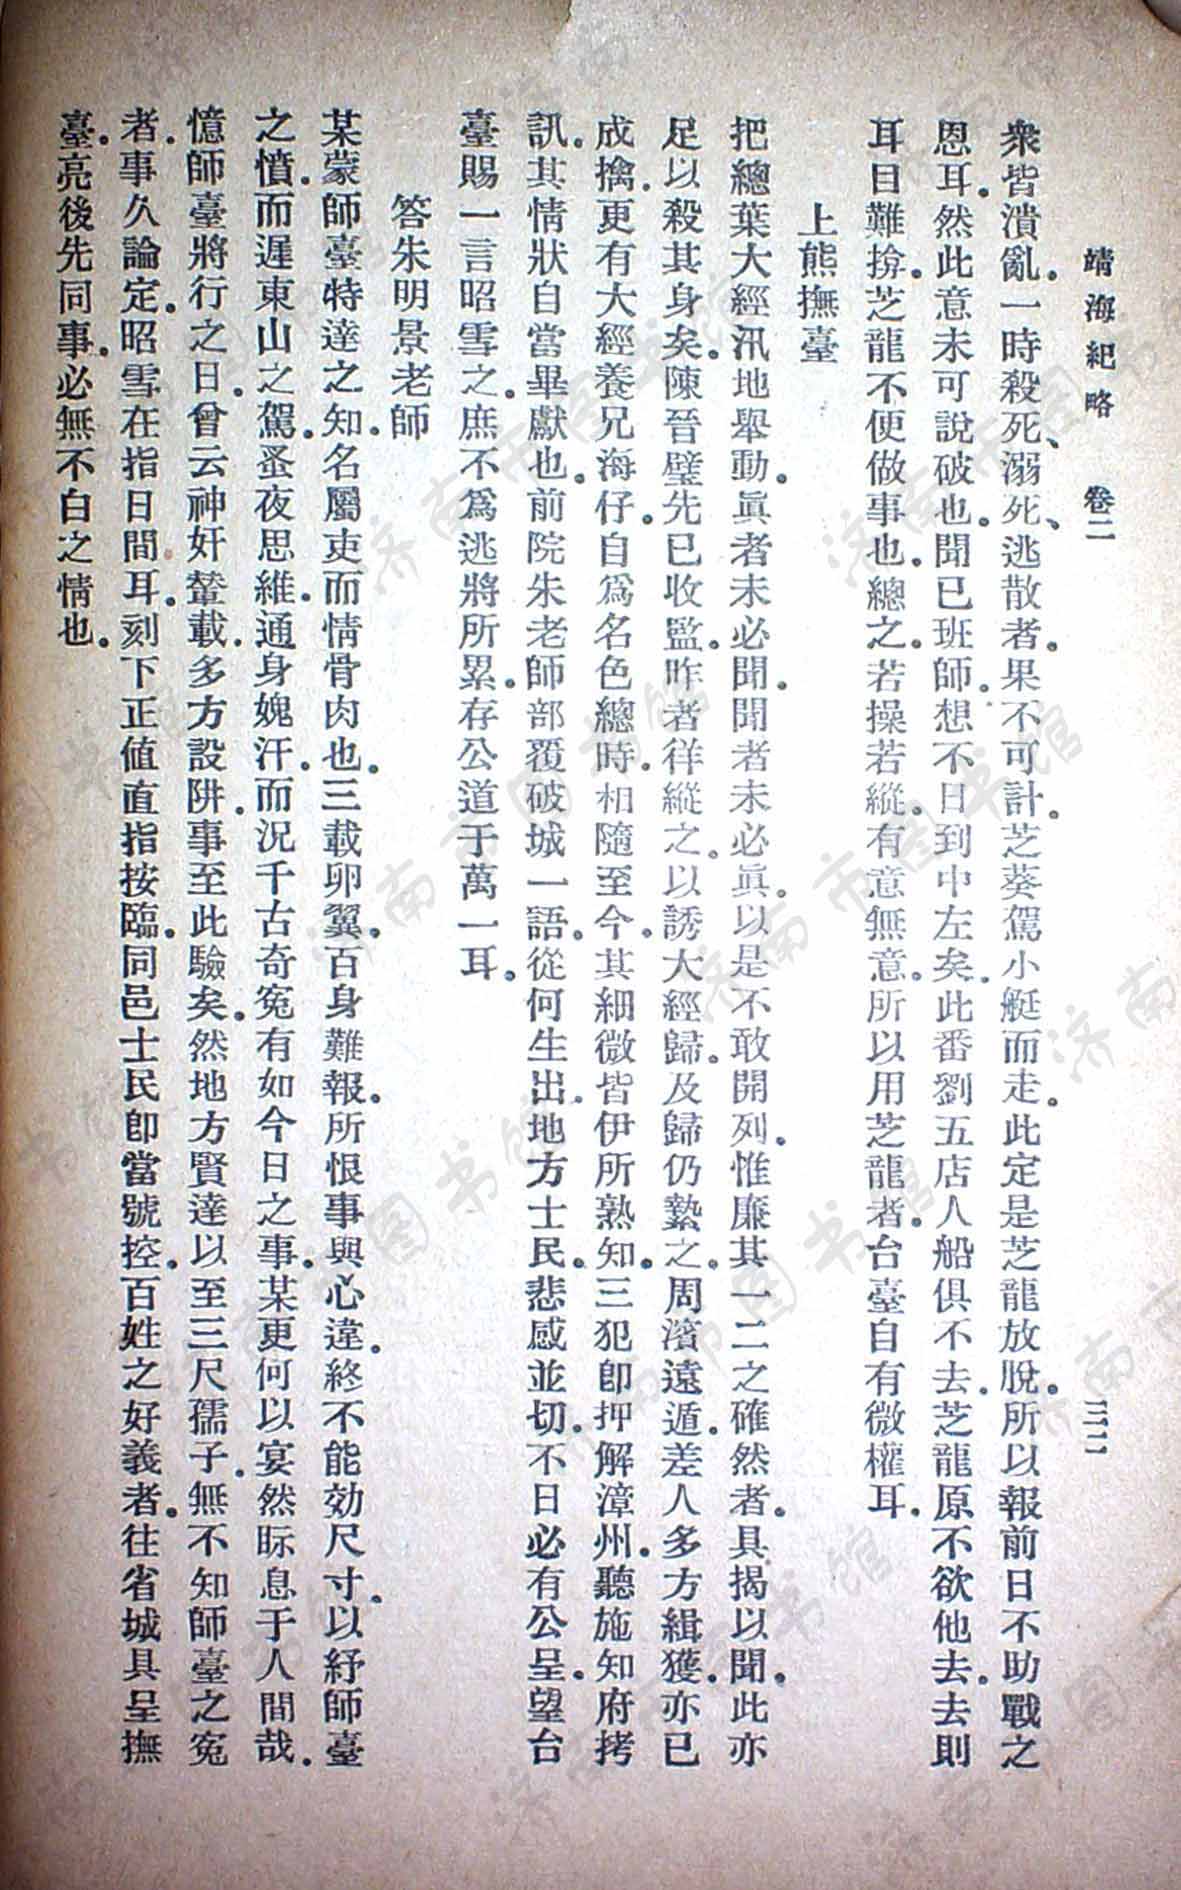 靖海紀略　卷二　三二
衆皆潰亂。一時殺死、溺死、逃散者。果不可計。芝葵駕小艇而走。此定是芝龍放脫。所以報前日不助戰之
恩耳。然此意未可說破也。聞已班師。想不日到中左矣。此番劉五店人船俱不去。芝龍原不欲他去。去則
耳目難揜。芝龍不便做事也。總之。若操若縱。有意無意。所以用芝龍者。台臺自有微權耳。
上熊撫臺
把總葉大經汛地舉動。眞者未必聞。聞者未必眞。以是不敢開列。惟廉其一二之確然者。具揭以聞。此亦
足以殺其身矣。陳晉璧先已收監。昨者徉縱之。以誘大經歸。及歸仍縶之。周濱遠遁。差人多方緝獲。亦已
成擒。更有大經養兄海仔。自爲名色總時。相隨至今。其細微皆伊所熟知。三犯即押解漳州。聽施知府拷
訊。其情狀自當畢獻也。前院朱老師部覆破城一語。從何生出。地方士民。悲感並切。不日必有公呈。望台
臺賜一言昭雪之。庶不爲逃將所累。存公道于萬一耳。
答朱明景老師
某蒙師臺特達之知。名屬吏而情骨肉也。三載卵翼。百身難報。所恨事與心違。終不能効尺寸。以紓師臺
之憤。而遲東山之駕。蚤夜思維。通身媿汗。而況千古奇寃有如今日之事。某更何以宴然眎息于人間哉。
憶師臺將行之日。曾云神奸輦載。多方設阱。事至此驗矣。然地方賢達以至三尺孺子。無不知師臺之寃
者。事久論定。昭雪在指日間耳。刻下正値直指按臨。同邑士民即當號控。百姓之好義者。往省城具呈撫
臺。亮後先同事。必無不白之情也。